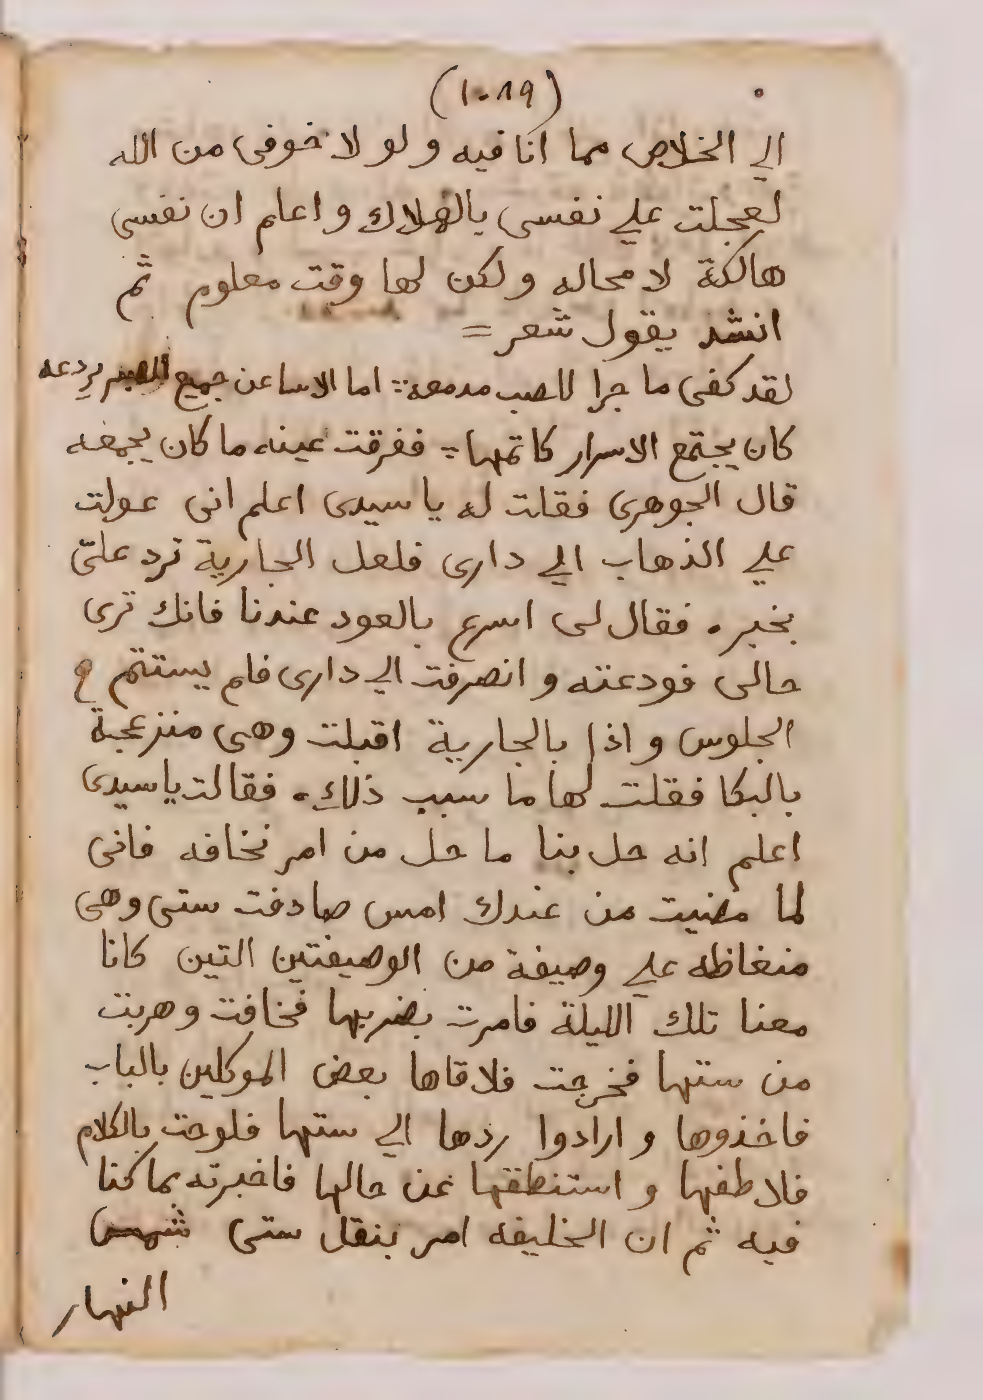 (١٠١٩)
الي الخلاص مما انا فيه ولو لا خوفى من الله
لعجلت علي نفسى بالهلاك واعلم ان نفسى
هالكة لا محاله ولكن لها وقت معلوم ثم
انشد يقول شعر =
لقد كفى ما جرا للصب مدمعه :: اما الاسا عن جميع الصبر يردعه
كان يجتمع الاسرار كاتمها :: ففرقت عينه ما كان يجمعه
قال الجوهرى فقلت له يا سيدى اعلم انى عولت
علي الذهاب الي دارى فلعل الجارية ترد علىّ
بخبر . فقال لى اسرع بالعود عندنا فانك ترى
حالى فودعته وانصرفت الي دارى فلم يستتم
الجلوس واذا بالجارية اقبلت وهى منزعجة
بالبكا فقلت لها ما سبب ذلك . فقالت يا سيدى
اعلم انه حل بنا ما حل من امر نخافه فانى
لما مضيت من عندك امس صادفت ستى وهى
منغاظه علي وصيفة من الوصيفتين التين كانا
معنا تلك الليلة فامرت بضربها فخافت وهربت
من ستها فخرجت فلاقاها بعض الموكلين بالباب
فاخذوها وارادوا ردها الي ستها فلوحت بالكلام
فلاطفها واستنطقها عن حالها فاخبرته بما كنا
فيه ثم ان الخليفه امر بنقل ستى شمس
النهار